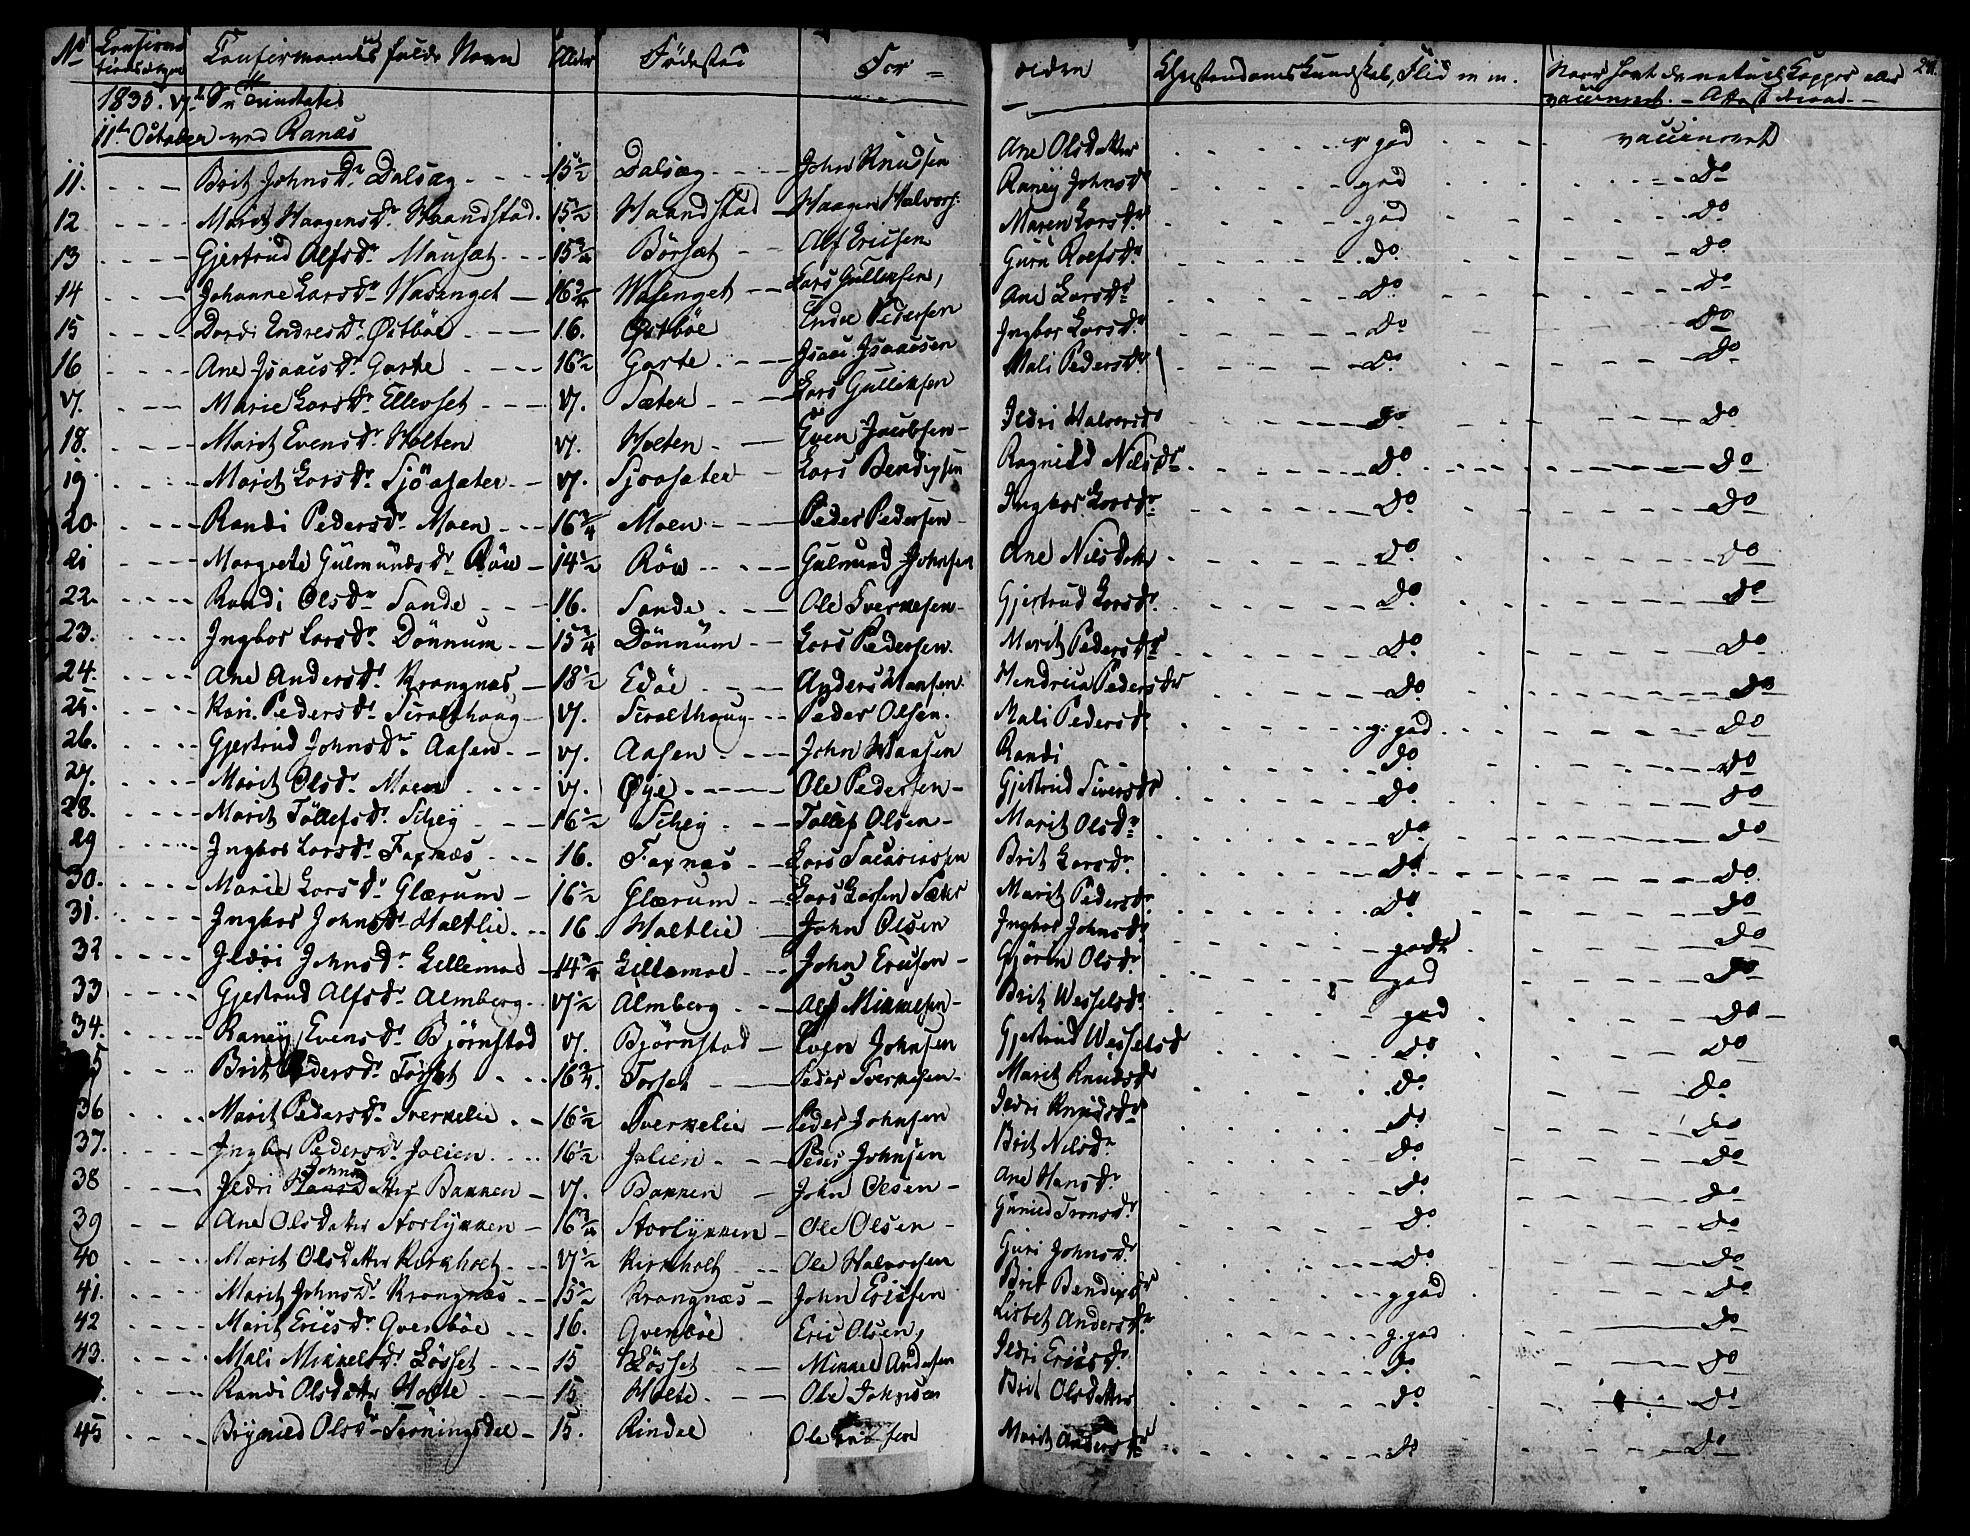 No Confirmationsdagen Confirmandens fulde Navn Alder Fødested For= ældre Christendomskundskab, Flid m m. Naar havt de naturl. Kopper eller vaccineret. - Attest derom.
1835. 17de Sn Trinitatis
11te October ved Ranæs
11. Brit Johnsdr Dalsæg 15½ Dalsæg John Knudsen Ane Olsdatter god vaccineret
12 Marit Haagensdr Haandstad. 15½ Haandstad Haagen Halvors: Raney Johnsdr god do
13 Gjertrud Alfsdr Mauset 15¾ Börsæt Alf Ericsen Maren Larsdr god do
14 Johanne Larsdr Wasenget 16¾ Wasenget Lars Gulliksen, Guru Roefsdr do do
15 Dordi Endresdr Østböe 16. Østböe Endre Pedersen Ane Larsdr do do
16 Ane Isaacsdr Garte 16½ Garte Isaac Isaacsen Ingbor Larsdr do do
17. Marie Larsdr Ellevset 17. Sæter Lars Gulliksen Mali Pedersdr do do
18. Marit Evensdr Holten 17. Holten Even Jacobsen Ildri Halvorsdr do do
19 Marit Larsdr Sjöasæter 17. Sjöasæter Lars Bendigsen Ragnild Nilsdr do do
20. Randi Pedersdr Moen 16¾ Moen Peder Pedersen Ingbor Larsdr do do
21 Margrete Gulmundsdr Röw 14½ Röw Gulmund Johnsen Ane Nilsdatter do do
22. Randi Olsdr Sande 16. Sande Ole Sverkesen Gjertrud Larsdr do do
23. Ingbor Larsdr Dönnum 15¾ Dönnum Lars Pedersen. Marit Pedersdr do do
24. Ane Andersdr Krangnæs 18½ Edöe Anders Hansen Hendrica Pedersdr do do
25. Kari Pedersdr Siralthaug 17. Siralthaug Peder Olsen. Mali Pedersdr g. god do
26. Gjertrud Johnsdr Aasen 17. Aasen John Hansen Randi do do
27. Marit Olsdr Moen 17. Øye Ole Pedersen Gjertrud Siversdr do do
28. Marit Töllefsdr Schey 16½ Schey Tollef Olsen Marit Olsdr do do
29 Ingbor Larsdr Faxnæs 16. Faxnæs Lars Sacariassen Brit Larsdr do do
30. Marie Larsdr Glærum 16½ Glærum Lars Larsen Sæter Marit Pedersdr do do
31. Ingbor Johnsdr Haltlie 16. Haltlie John Olsen Ingbor Johnsdr godt do
32 Ildri Johnsdr Lillemoe 14¾ Lillemoe John Ericsen Gjøren Olsdr god do
33 Gjertrud Alfsdr Almberg 17½ Almberg Alf Mikkelsen Brit Wesselsdr god do
34. Raney Evensdr Bjørnstad 17. Bjørnstad Even Johnsen Gjertrud Wesselsd do do
5 Brit Pedersdr Torset 16¾. Torset Peder Sverkesen Marit Knudsdr do do
36 Marit Pedersdr Sverkelie 16½ Sverkelie Peder Johnsen Ildri Knudsdr do do
37. Ingbor Pedersdr Jalien 16½ Jalien Peder Johnsen Brit Nilsdr do do
38 Ildri Johns Hansdatter Bakken 17. Bakken John Olsen Ane Hansdr do do
39 Ane Olsdatter Storlykken 16¾ Storlykken Ole Olsen Gunild Tronsdr do do
40 Marit Olsdatter Kirkholt 17½ Kirkholt Ole Halvorsen Guri Johnsdr do do
41. Marit Johnsdr Krangnæs 15½ Krangnæs John Ericsen Brit Bendixsdr g god do
42 Marit Ericsdr Qvenböe 16. Qvenböe Eric Olsen, Lisbet Andersdr g. god do
43. Mali Mikkelsdr Lösset 15 Lösset Mikkel Andersen Ildri Ericsdr do do
Randi Olsdatter Holte 15 Holte Ole Johnsen Brit Olsdatter do do
45 Brynild Olsdr Tröningsdal 15. Rindal Ole Marit Andersdr do do